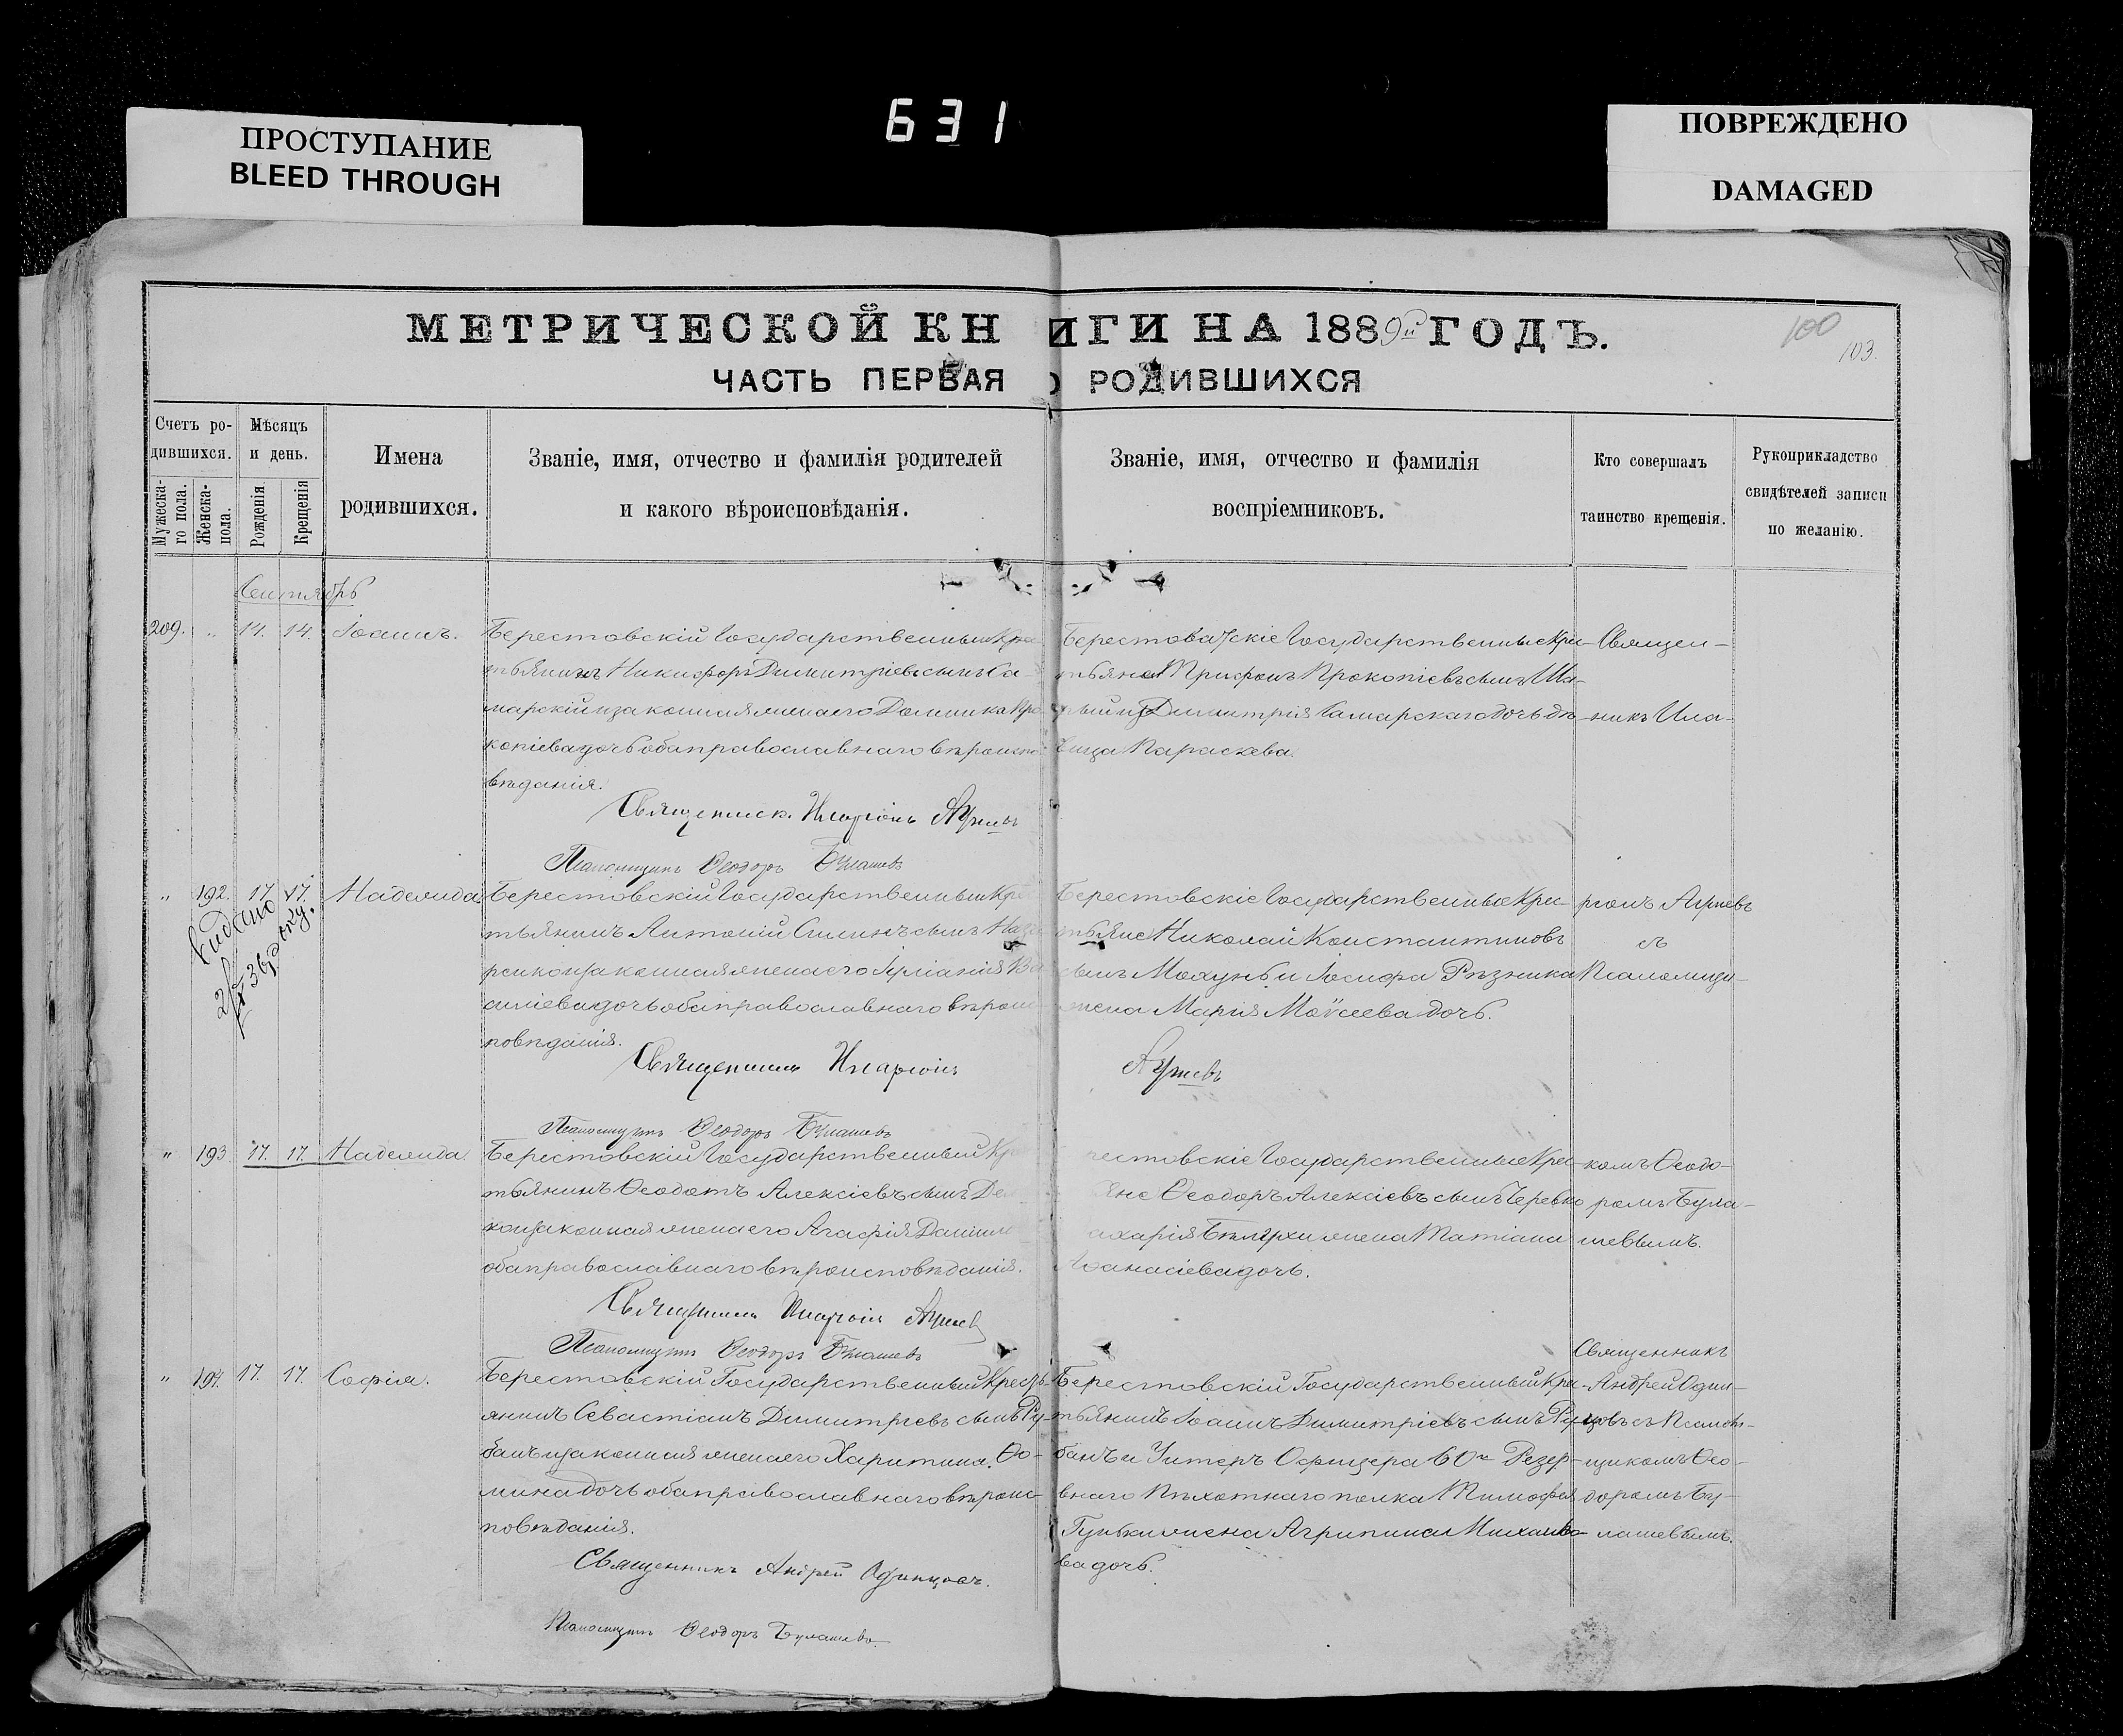 631
ПРОСТУПАНИЕ
BLEED THROUGH
ПОВРЕЖДЕНО
DAMAGED
МЕТРИЧЕСКОЙ КНИГИ НА 1889й ГОДЪ.
100
103.
ЧАСТЬ ПЕРВАЯ О РОДИВШИХСЯ
Счетъ ро-
дившихся.
Мужеска-
го пола.
Женска-
пола.
Мѣсяцъ
и день.
Рожденія
Крещенія
Имена
родившихся.
Званіе, имя, отчество и фамилія родителей
и какого вѣроисповѣданія.
Званіе, имя, отчество и фамилія
воспріемниковъ.
Кто совершалъ
таинство крещенія.
Рукоприкладство
свидѣтелей записи
по желанію.
Сентябрь
209. „ 14. 14. Іоаннъ.
Берестовскій Государственный Кре
тьянинъ Никифоръ Димитріевъ сынъ Са-
марскій и законная жена его Домника Про
копіева дочь оба православнаго вѣроиспо-
вѣданія.
Священник. Иларіонъ Агриевъ
Псаломщикъ Ѳеодоръ Булашевъ
Берестовскіе Государственные Кре-
тьяне Трифонъ Прокопіевъ сынъ
Димитрія Самарскаго дочь дѣ-
вица Параскева.
Священ-
никъ Ила-
„ 192. 17. 17. Надежда
видано
Берестовскій Государственный Кре
тьянинъ Антоній Силинъ сынъ
законная жена его Іуліанія Ва
силіева дочь оба православнаго вѣроис-
повѣданія.
Священникъ Иларіонъ
Агриевъ
Псаломщикъ Ѳеодоръ Булашевъ
Берестовскіе Государственные Крес-
тьяне Николай Константиновъ
сынъ и Іосифа Рѣзника
жена Марія Моѵсеева дочь.
ріонъ Агриевъ
съ
Псаломщи-
„ 193. 17. 17. Надежда.
Берестовскій Государственный Кр
тьянинъ Ѳеодотъ Алексіевъ сынъ
законная жена его Агафія Даніил
оба православнаго вѣроисповѣданія.
Священникъ Иларіонъ Агриевъ
Псаломщикъ Ѳеодоръ Булашевъ
рестовскіе Государственные Крес-
яне Ѳеодоръ Алексіевъ сынъ Черевко
ахарія жена Татіана
Аѳанасіева дочь.
комъ Ѳеодо-
ромъ Була-
шевымъ.
„ 194. 17. 17. Софія.
Берестовскій Государственный Кресть-
янинъ Севастіанъ Димитріевъ сынъ Ру-
банъ и законная жена его Харитина Ѳо-
мина дочь оба православнаго вѣроис-
повѣданія.
Священникъ Андрей Одинцовъ.
Псаломщикъ Ѳеодоръ Булашевъ
Берестовскій Государственный Кре-
тьянинъ Іоаннъ Димитріевъ сынъ Ру-
банъ и Унтеръ Офицера 60го Резер-
внаго Пѣхотнаго полка Тимофея
Гунька жена Агрипина Михаило-
ва дочь.
Священникъ
Андрей Один-
цовъ съ Псалом-
щикомъ Ѳео-
доромъ Бу-
лашевымъ.